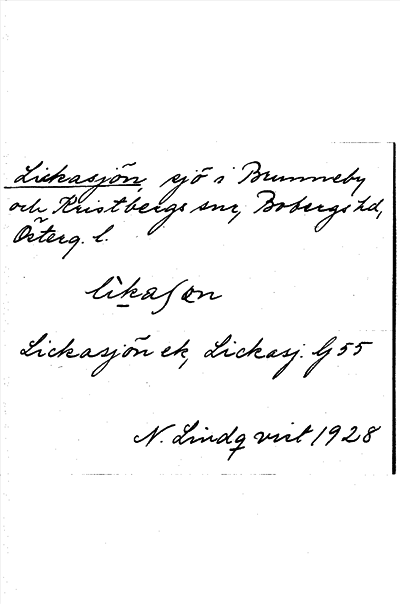 Lickasjön, sjö i Brunneby
och Kristbergs snr, Bobergs hd,
Österg. l.
lìkaʃøn
Lickasjön ek, Lickasj. G 55
N. Lindqvist 1928